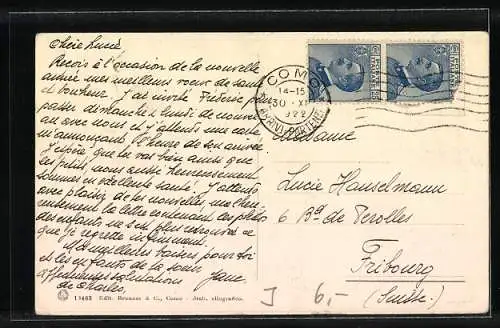 Chère Lucie
Reçois à l'occasion de la nouvelle
année mes meilleurs vœux de santé
et bonheur. J'ai invité Frédéric pour
passer dimanche et lundi de nouvel
an avec nous et j'attends une carte
m'annonçant l'heure de son arrivée
J'espère, que tu vas bien ainsi que
les petits, nous aussi heureusement
sommes en excellente santé. J'attends
avec plaisir de tes nouvelles, malheu-
reusement la lettre contenant les photos
des enfants ne s'est plus retrouvée ce
que je regrette infiniment.
Mes meilleurs baisers pour toi
et les enfants de ta sœur
affectueuses salutations
de Charles.
COMO
14-15
30 XII
922
Madame
Lucie Hanselmann
6 Bd de Perolles
Fribourg
(Suisse.)
6.-
11683 Edit. Brunner & C., Como